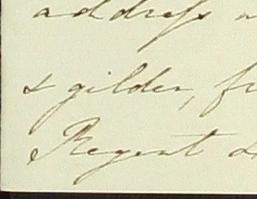 address
& gilder, fr
Regent